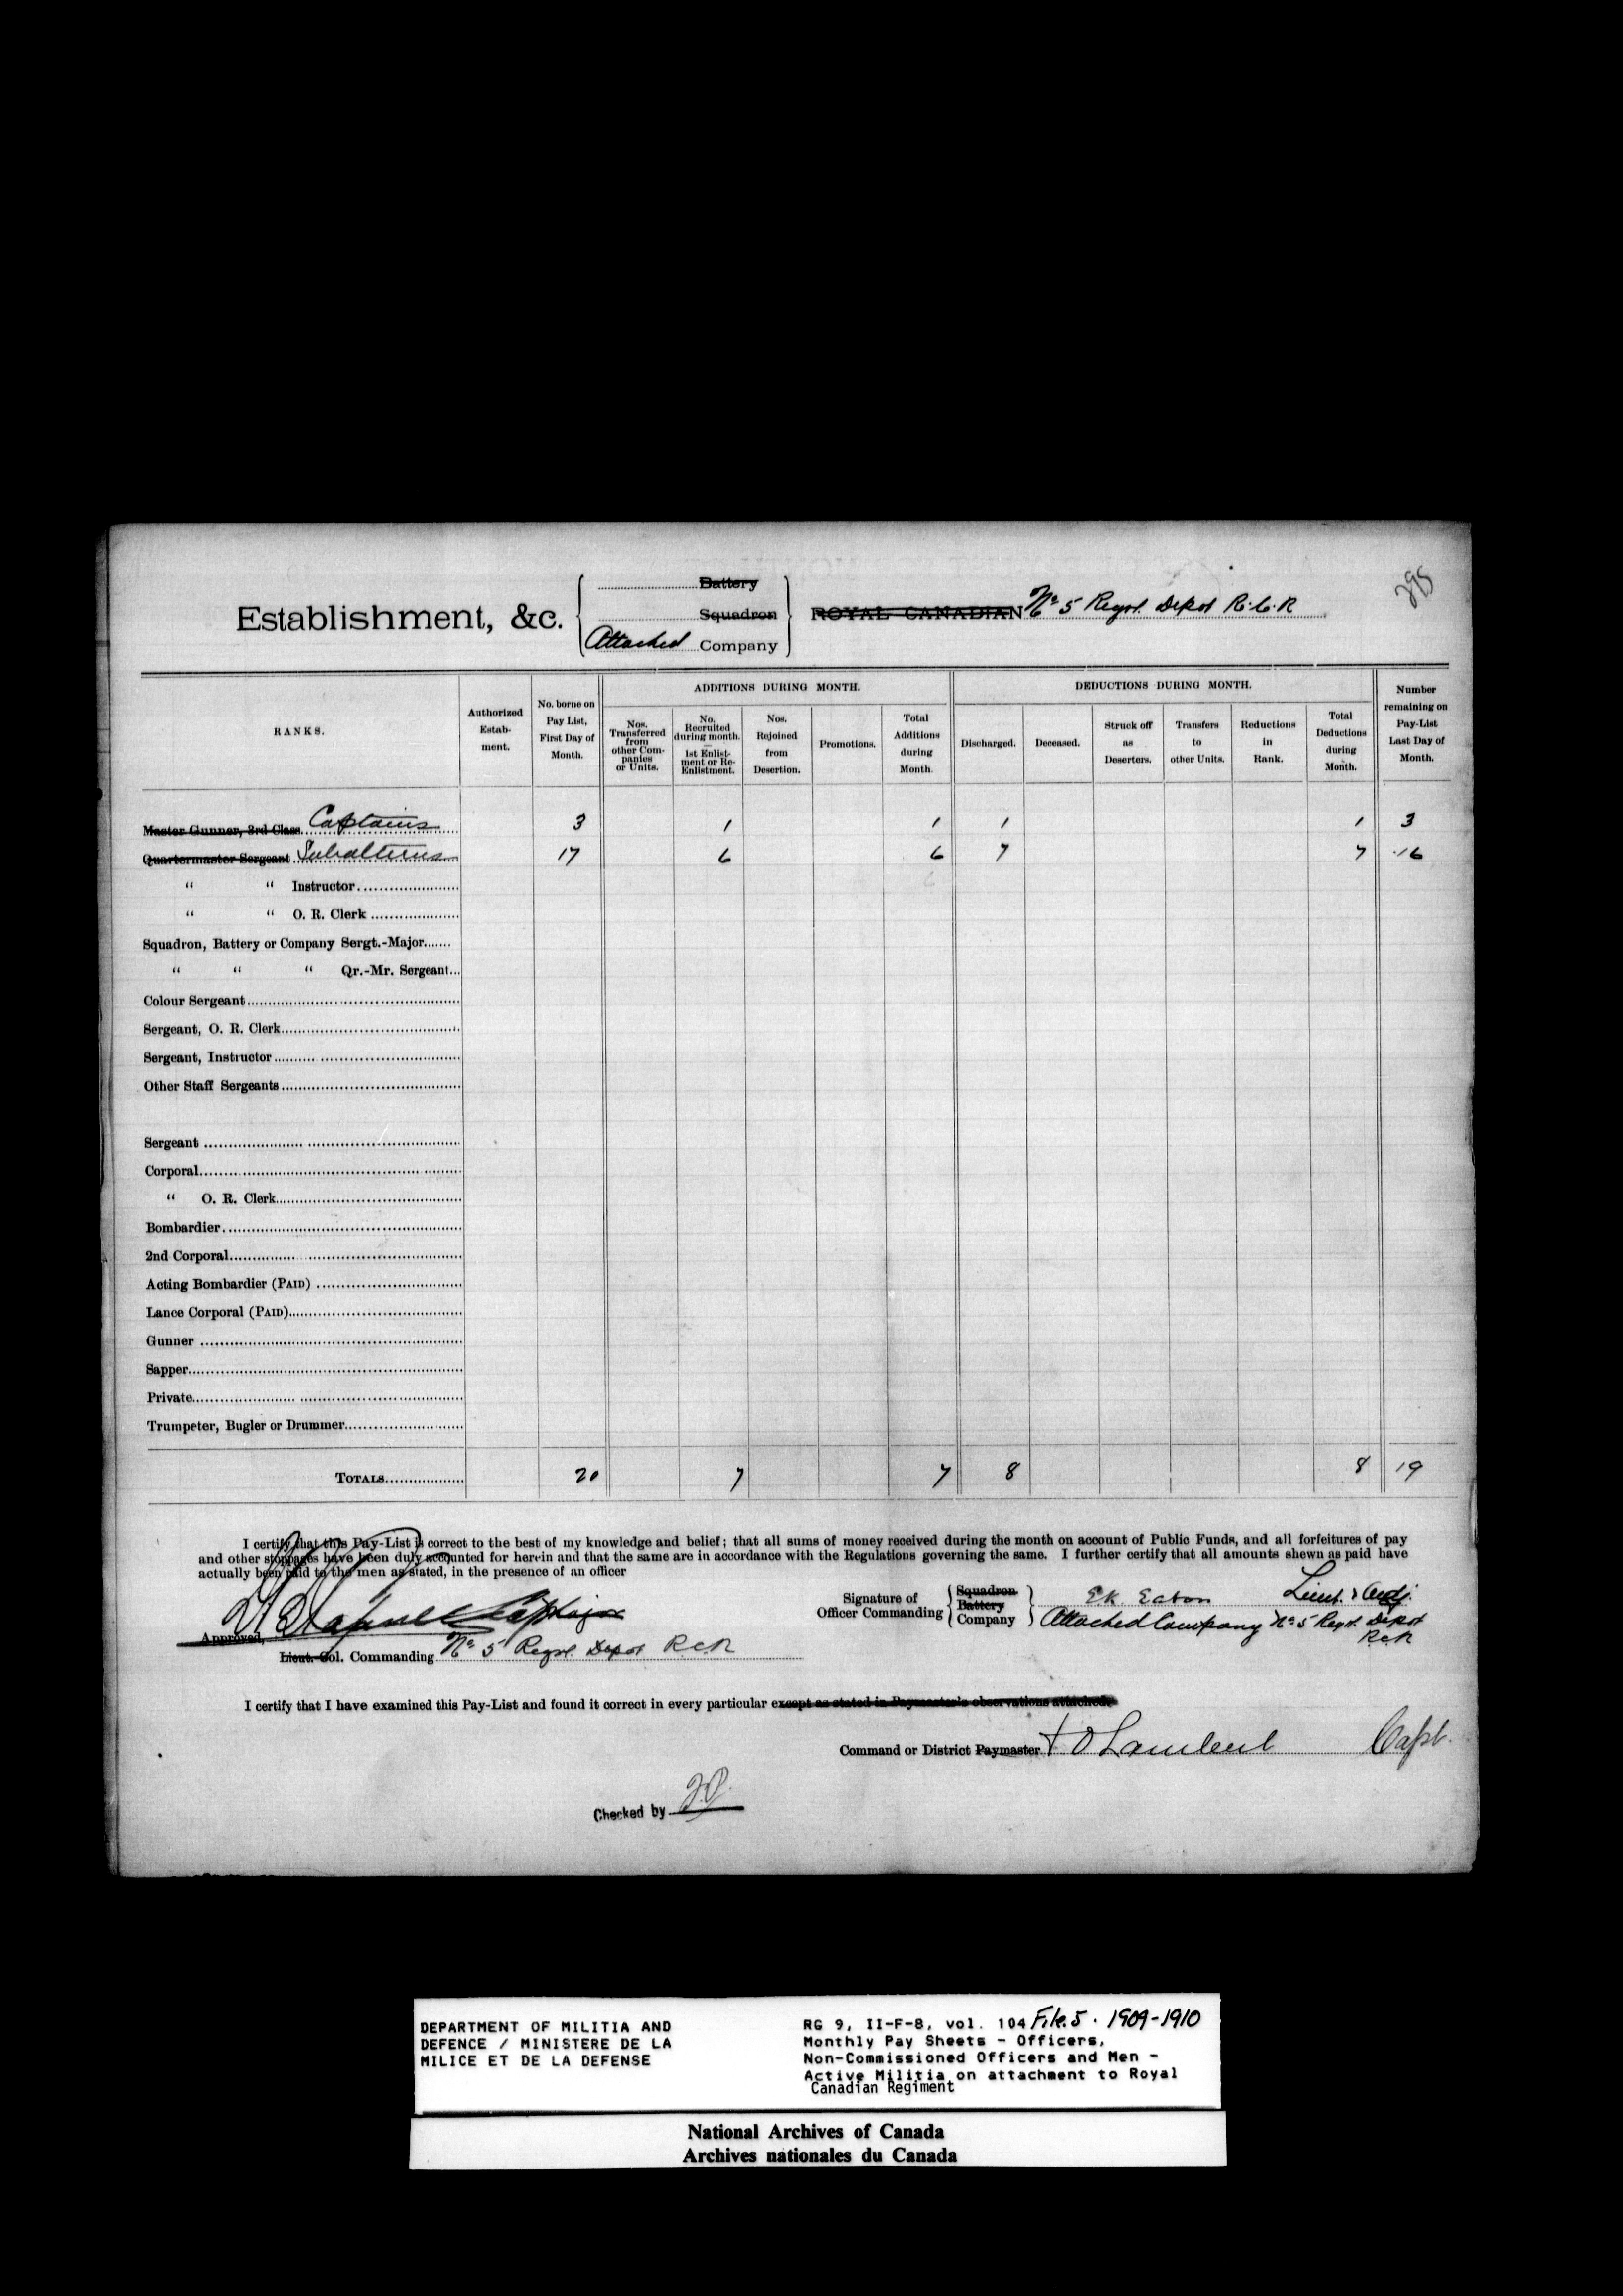 295
Battery
Establishment, &c. Squadron ROYAL CANADIAN No 5 Regtl. Depot R.C.R
Attached Company
RANKS. Authorized Estab-ment. No. borne on Pay List, First Day of Month. ADDITIONS DURING MONTH. DEDUCTIONS DURING MONTH. Number remaining on Pay-List Last Day of Month.
Nos. Transferred from other Com-panies or Units. No. Recruited during month. — 1st Enlist-ment or Re-Enlistment. Nos. Rejoined from Desertion. Promotions. Total Additions during Month. Discharged. Deceased. Struck off as Deserters. Transfers to other Units. Reductions in Rank. Total Deductions during Month.
Master Gunner, 3rd Class Captains 3 1 1 1 1 3
Quartermaster Sergeant Subalterns 17 6 6 7 7 16
" " Instructor
6
" " O. R. Clerk
Squadron, Battery or Company Sergt.-Major
" " " Qr.-Mr. Sergeant
Colour Sergeant
Sergeant, O. R. Clerk
Sergeant, Instructor
Other Staff Sergeants
Sergeant
Corporal
" O. R. Clerk
Bombardier
2nd Corporal
Acting Bombardier (PAID)
Lance Corporal (PAID)
Gunner
Sapper
Private
Trumpeter, Bugler or Drummer
TOTALS 20 7 7 8 8 19
I certify that this Pay-List is correct to the best of my knowledge and belief; that all sums of money received during the month on account of Public Funds, and all forfeitures of pay
and other stoppages have been duly accounted for herein and that the same are in accordance with the Regulations governing the same. I further certify that all amounts shewn as paid have
actually been paid to the men as stated, in the presence of an officer
Signature of Officer Commanding Squadron Battery Company EK Eaton Lieut. & Adj.
Attached Company No 5 Regtl. Depot
R.C.R
Approved,
Lieut.-Col. Commanding No 5 Regtl. Depot R.C.R
I certify that I have examined this Pay-List and found it correct in every particular except as stated in Paymaster's observations attached.
Command or District Paymaster Lambert Capt.
Checked by
DEPARTMENT OF MILITIA AND
DEFENCE / MINISTERE DE LA
MILICE ET DE LA DEFENSE
RG 9, II-F-8, vol. 104 File 5. 1909-1910
Monthly Pay Sheets - Officers,
Non-Commissioned Officers and Men -
Active Militia on attachment to Royal
Canadian Regiment
National Archives of Canada
Archives nationales du Canada